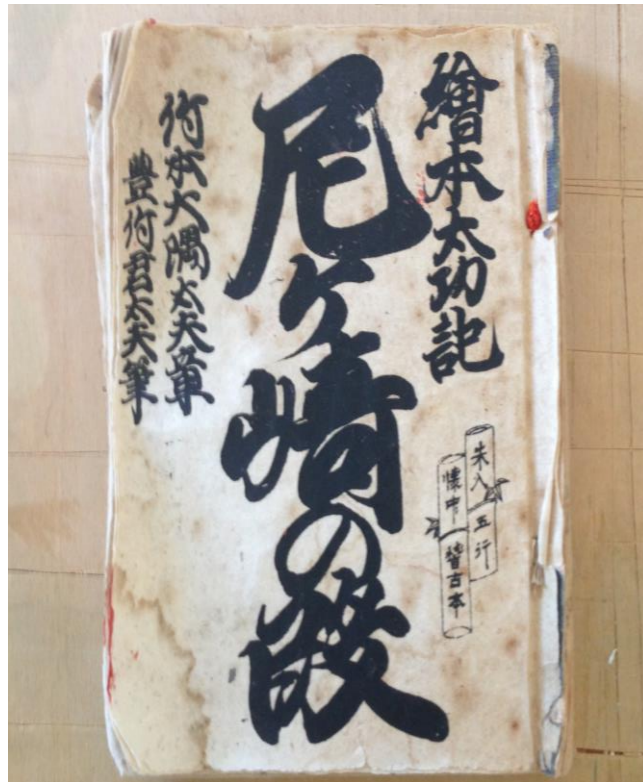 繪本太功記
尼ヶ崎の段
朱入五行
懐中稽古本
竹本大隅太夫章
豊竹君太夫筆